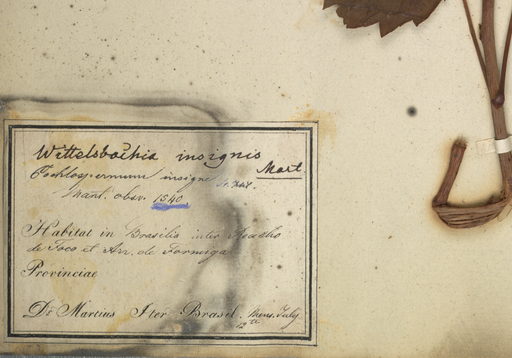 Wittelsbachia insignis
Mart
Cochlospermum insigne St. Hil.
Mart. obsr. 1540
Habitat in Brasilia inter Riacho
de Foco et Arr. de Formiga
Provinciae
Dr. Martius Iter Brasil. Mens. July
12te